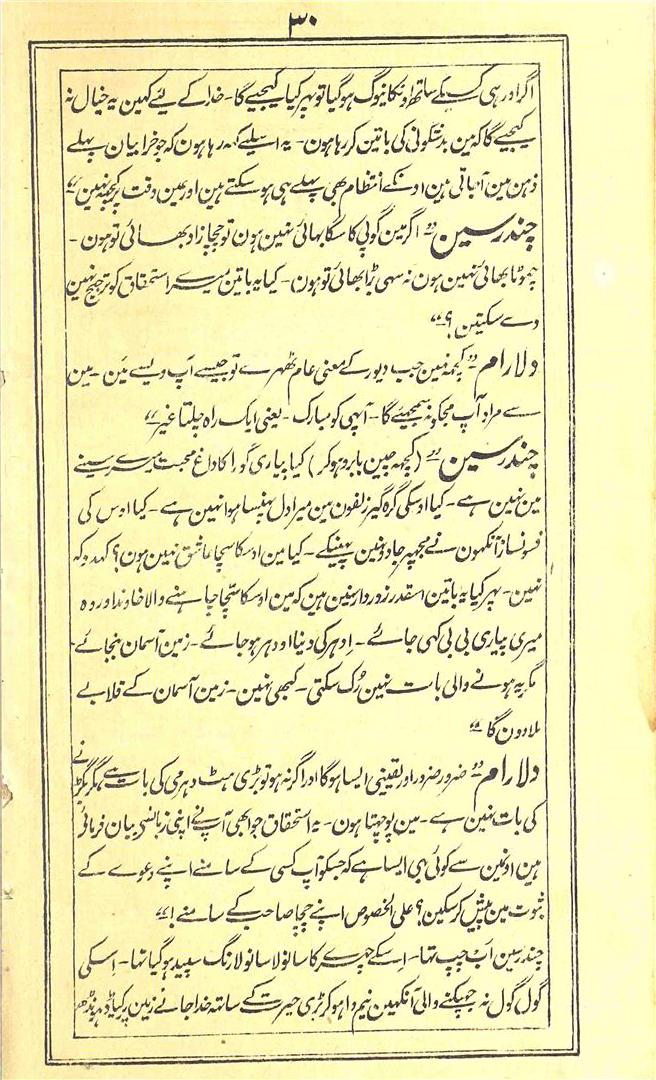 ۳۰
اگر اور ہی کسیکے ساتھ اونکا نیوگ ہوگیا تو پہر کیا کیجیے گا۔ خدا کے لیئے کہین یہ خیال نہ
کیجیے گا کہ مین بدشگونی کی باتین کر رہا ہون۔ یہ اسلیے کہہ رہا ہون کہ جو خرابیان پہلے
ذہن مین آجاتی ہین اونکے انتظام بھی پہلے ہی ہو سکتے ہین اور عین وقت پر کچھ نہین"
چندرسین "اگر مین گوپی کا سگا بھائی نہین ہون تو چچازاد بھائی تو ہون۔
چھوٹا بھائی نہین ہون نہ سہی بڑا بھائی تو ہون۔ کیا یہ باتین میرے استحقاق کو ترجیح نہین
دے سکتین؟"
دلارام "کچھ نہین جب دیور کے معنی عام ٹھہرے تو جیسے آپ ویسے مین۔ مین
سے مراد آپ مجکو نہ سمجھئے گا۔ آپہی کو مبارک۔ یعنی ایک راہ چلتا غیر"
چندرسین "(کچھہ چین بابرو ہوکر) کیا پیاری گورا کا داغ محبت میرے سینے
مین نہین ہے۔ کیا اوسکی گرہ گیر زلفون مین میرا دل پہنسا ہوا نہین ہے۔ کیا اوس کی
فسونساز آنکھون نے مجھپر جادو نہین پھینکے۔ کیا مین اوسکا سچا عاشق نہین ہون؟ کہدو کہ
نہین۔ پہر کیا یہ باتین اسقدر زوردار نہین ہین کہ مین اوسکا سچا چاہنے والا خاوند اور وہ
میری پیاری بی بی کہی جائے۔ اِدہر کی دینا اودہر ہوجائے۔ زمین آسمان بنجائے۔
مگر یہ ہونے والی بات نہین رُک سکتی۔ کبھی نہین۔ زمین آسمان کے قلابے
ملا دون گا"
دلارام "ضرور ضرور اور یقینی ایسا ہوگا اور اگر نہ ہو تو بڑی ہٹ دہرمی کی بات ہے مگر بگڑنے
کی بات نہین ہے۔ مین پوچھتا ہون۔ یہ استحقاق جو ابھی آپ نے اپنی زبانسے بیان فرمائے
ہین اونمین سے کوئی بھی ایسا ہے کہ جسکو آپ کسی کے سامنے اپنے دعوے کے
ثبوت مین پیش کرسکین؟ علی الخصوص اپنے چچا صاحب کے سامنے!"
چندرسین اَب چپ تھا۔ اِسکے چہرے کا سانولا سانولا رنگ سپید ہوگیا تھا۔ اِسکی
گول گول نہ جھپکنے والی آنکھین نیم وا ہوکر بڑی حیرت کے ساتھ خدا جانے زمین پر کیا ڈھونڈھ